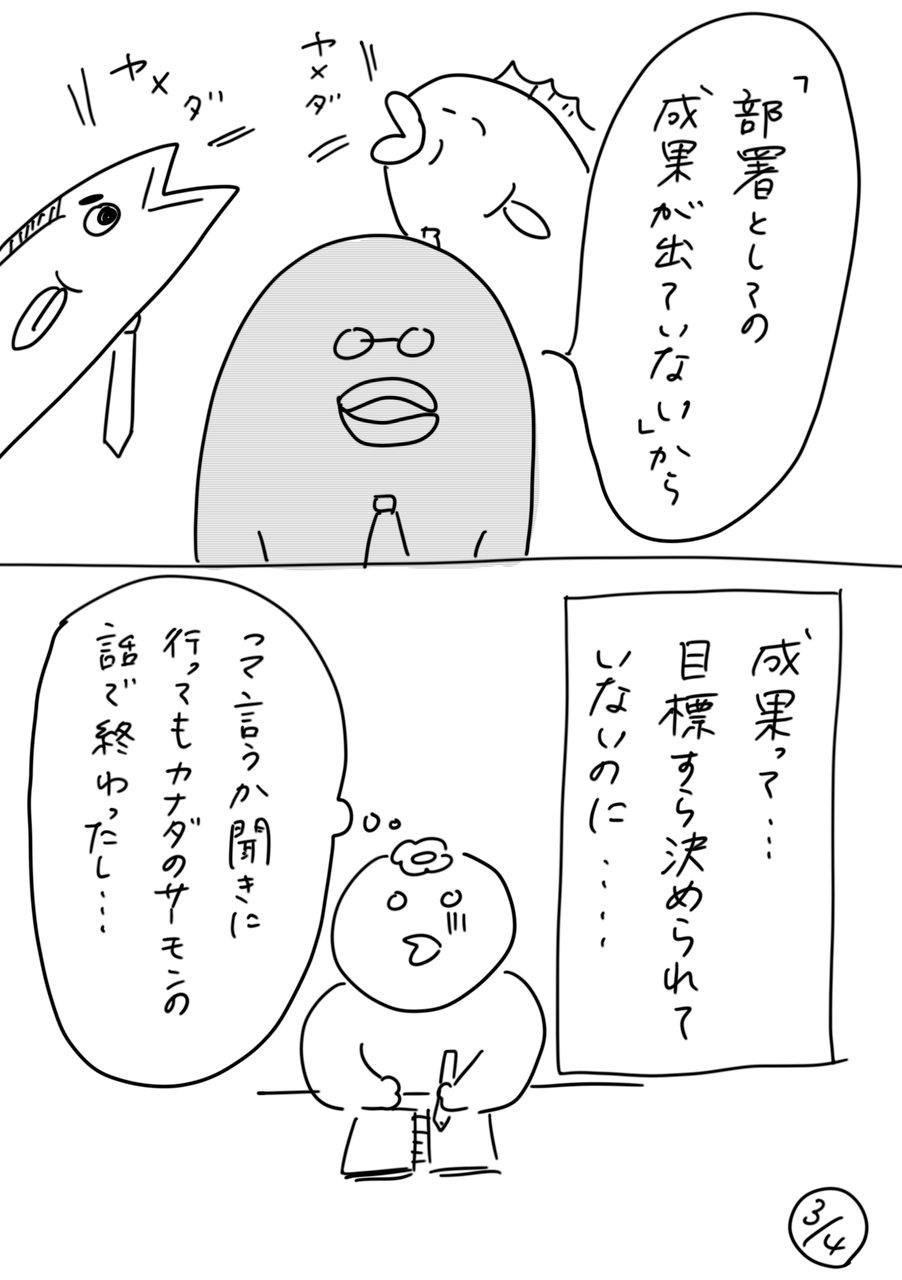 「部署としての
成果が出ていない」から
ヤメダ
ヤメダ
成果って…
目標すら決められて
いないのに‥‥
って言うか聞きに
行ってもカナダのサーモンの
話で終わったし…
3/4